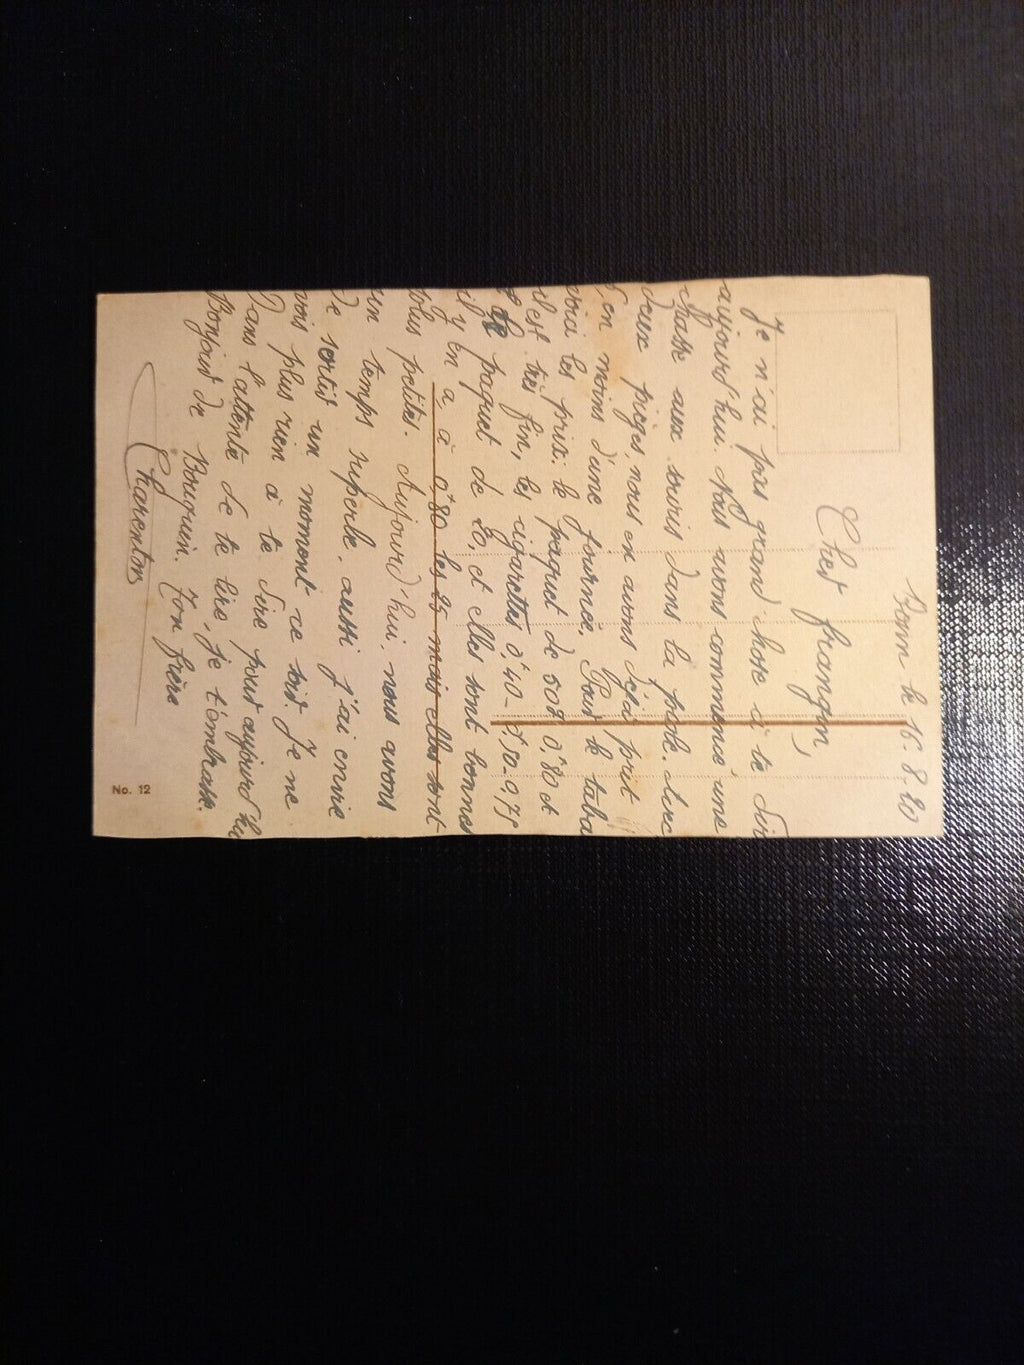 Bonn le 16.8.20
Cher frangin,
Je n'ai pas grand chose à te dir
aujourd'hui. Nous avons commencé une
chasse aux souris dans la piole. Avec
deux pièges, nous en avons déjà prit
5 en moins d'une journée. Pour le taba
voici les prix: le paquet de 50g 0,80 et
il est très fin, les cigarettes 0,40 - 0,50 - 0,75
le paquet de 20, et elles sont bonnes
il y en a à 0,80 les 25 mais elles sont
plus petites. Aujourd'hui, nous avons
un temps superbe. aussi j'ai envie
de sortir un moment ce soir. Je ne
vois plus rien à te dire pour aujourd'hu
Dans l'attente de te lire, je t'embrasse.
Bonjour de Bouquin. Ton frère
Charenton
No. 12